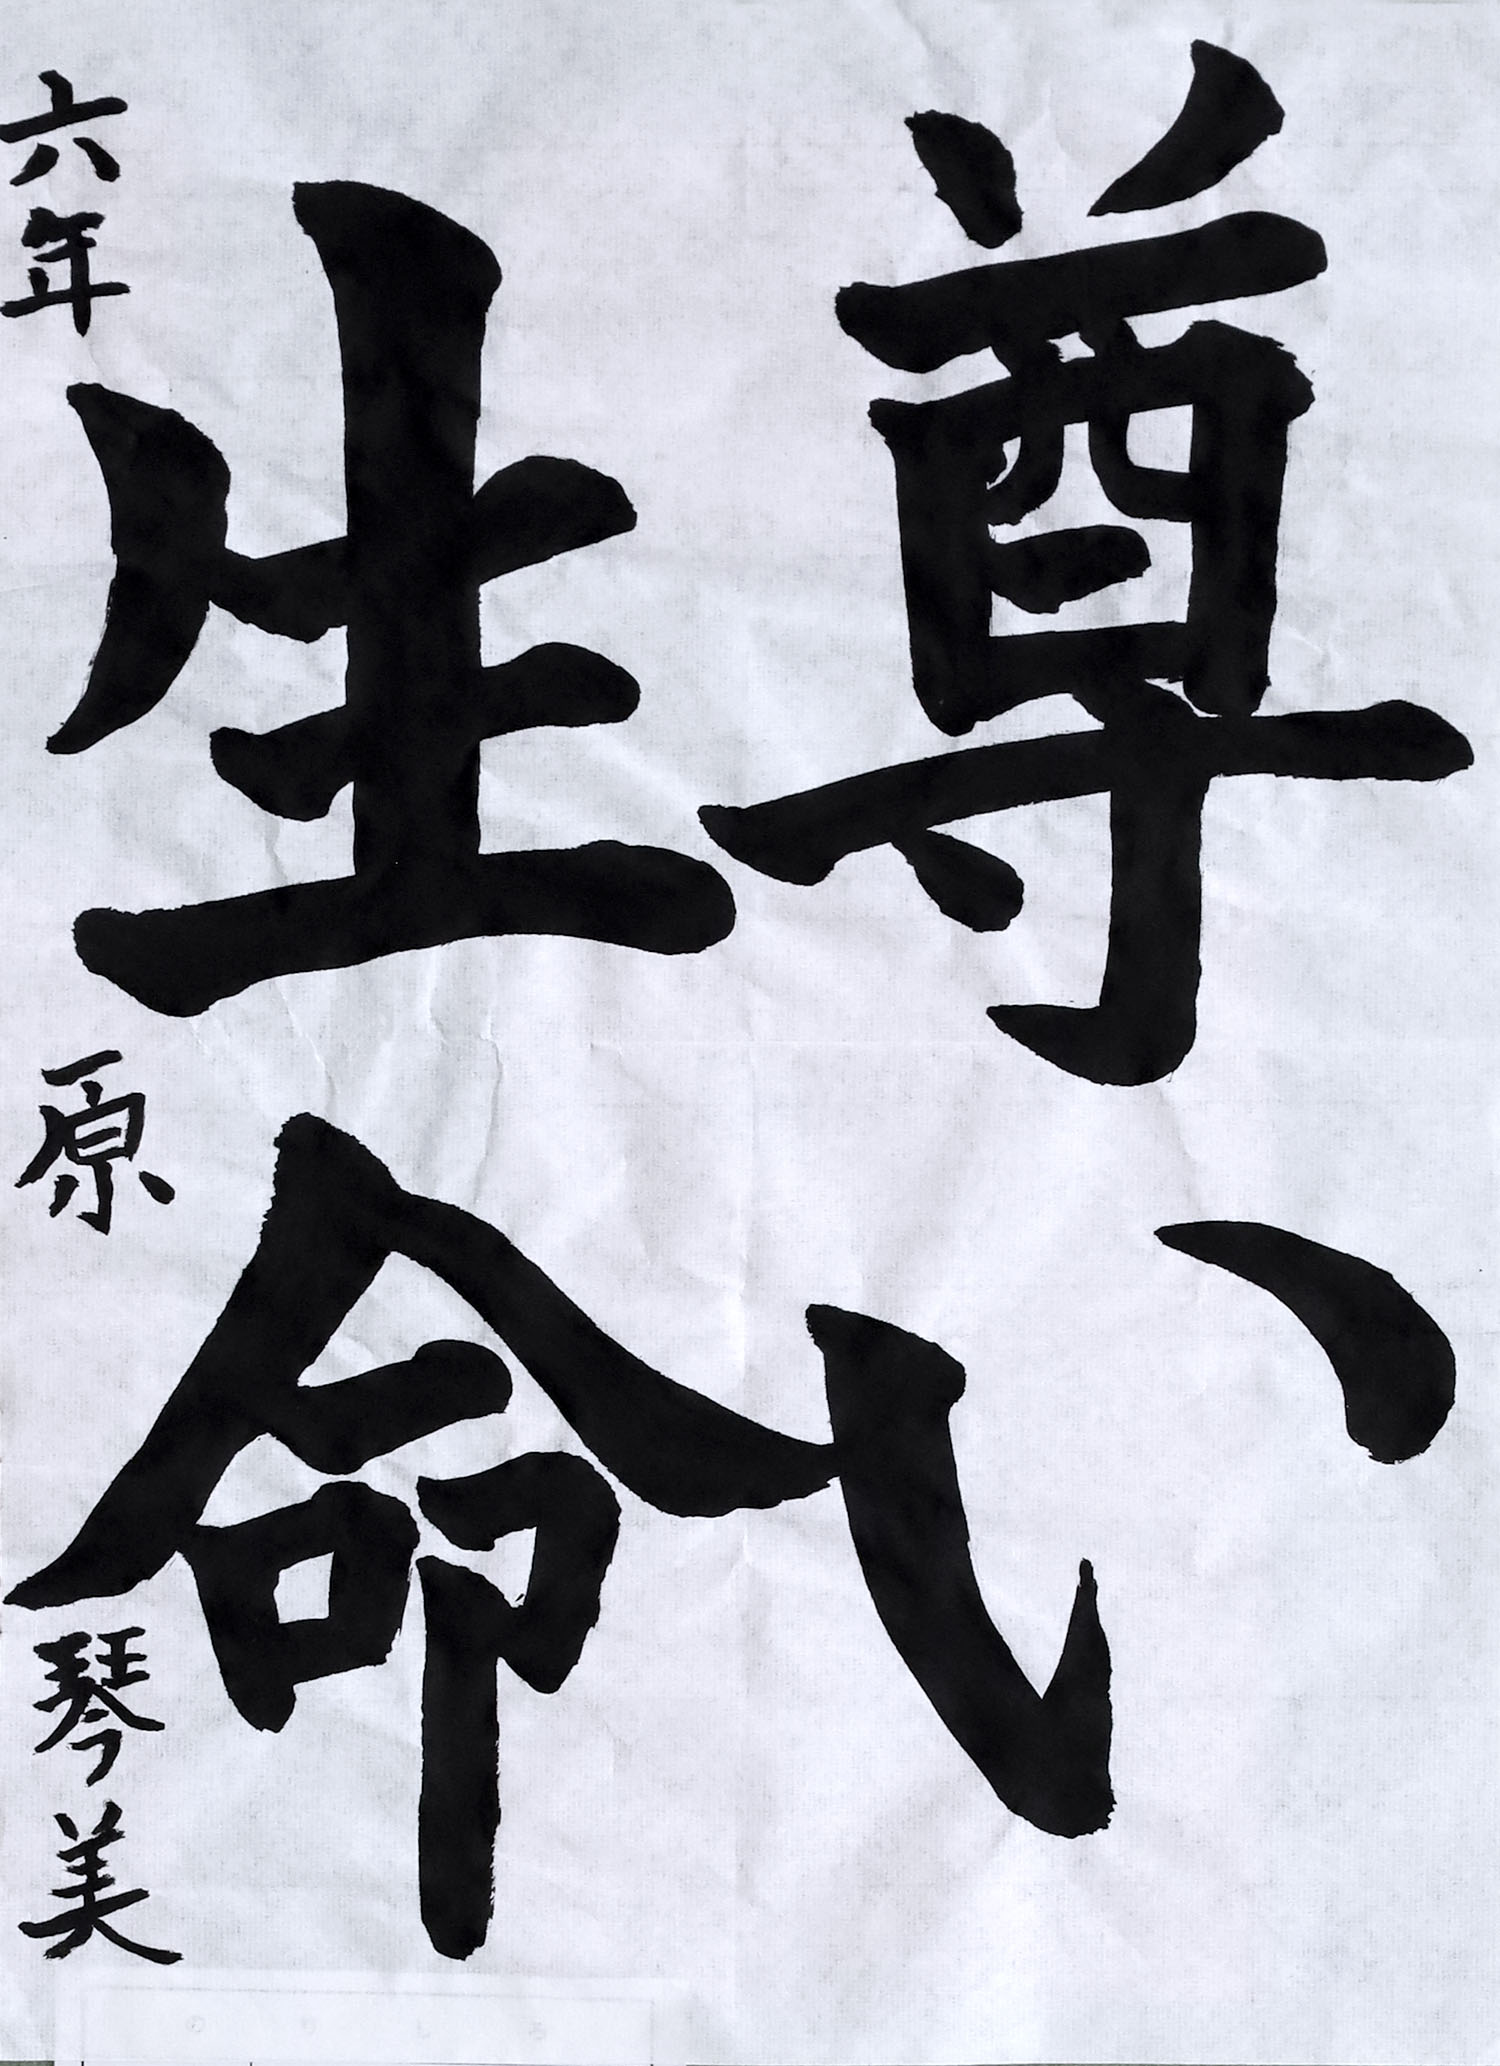 尊い
生命
六年 原 琴美